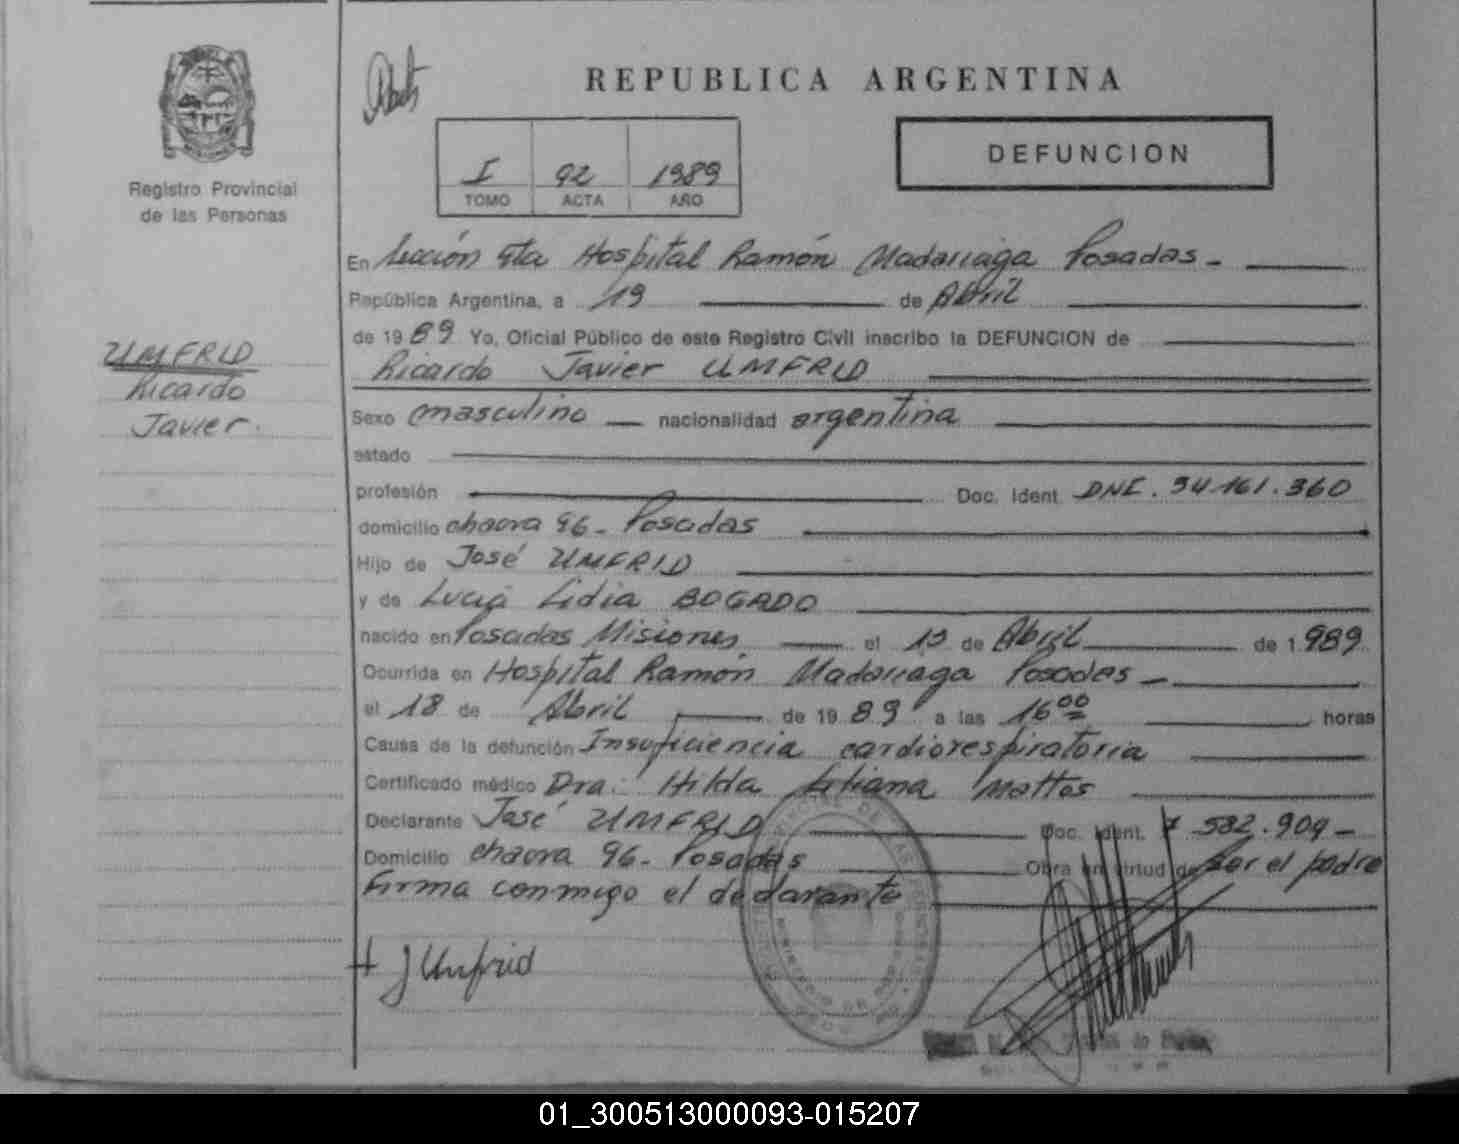 REPUBLICA ARGENTINA
I 92 1989
TOMO ACTA AÑO
DEFUNCION
Registro Provincial
de las Personas
UMFRID
Ricardo
Javier.
En Sección 5ta Hospital Ramón Madariaga Posadas -
República Argentina, a 19 de Abril
de 1989 Yo, Oficial Público de este Registro Civil inscribo la DEFUNCION de
Ricardo Javier UMFRID
Sexo masculino nacionalidad argentina
estado
profesión Doc. Ident. DNI. 34.161.360
domicilio chacra 96 - Posadas
Hijo de José UMFRID
y de Lucia Lidia BOGADO
nacido en Posadas Misiones el de Abril de 1.989
Ocurrida en Hospital Ramón Madariaga Posadas -
el 18 de Abril de 1989 a las 16 00 horas
Causa de la defunción Insuficiencia cardiorespiratoria
Certificado médico Dra. Hilda Liliana Mattos
Declarante José UMFRID Doc. Ident. 7.582.909 -
Domicilio chacra 96 - Posadas Obra en virtud de ser el padre
Firma conmigo el declarante
J Umfrid
01_300513000093-015207